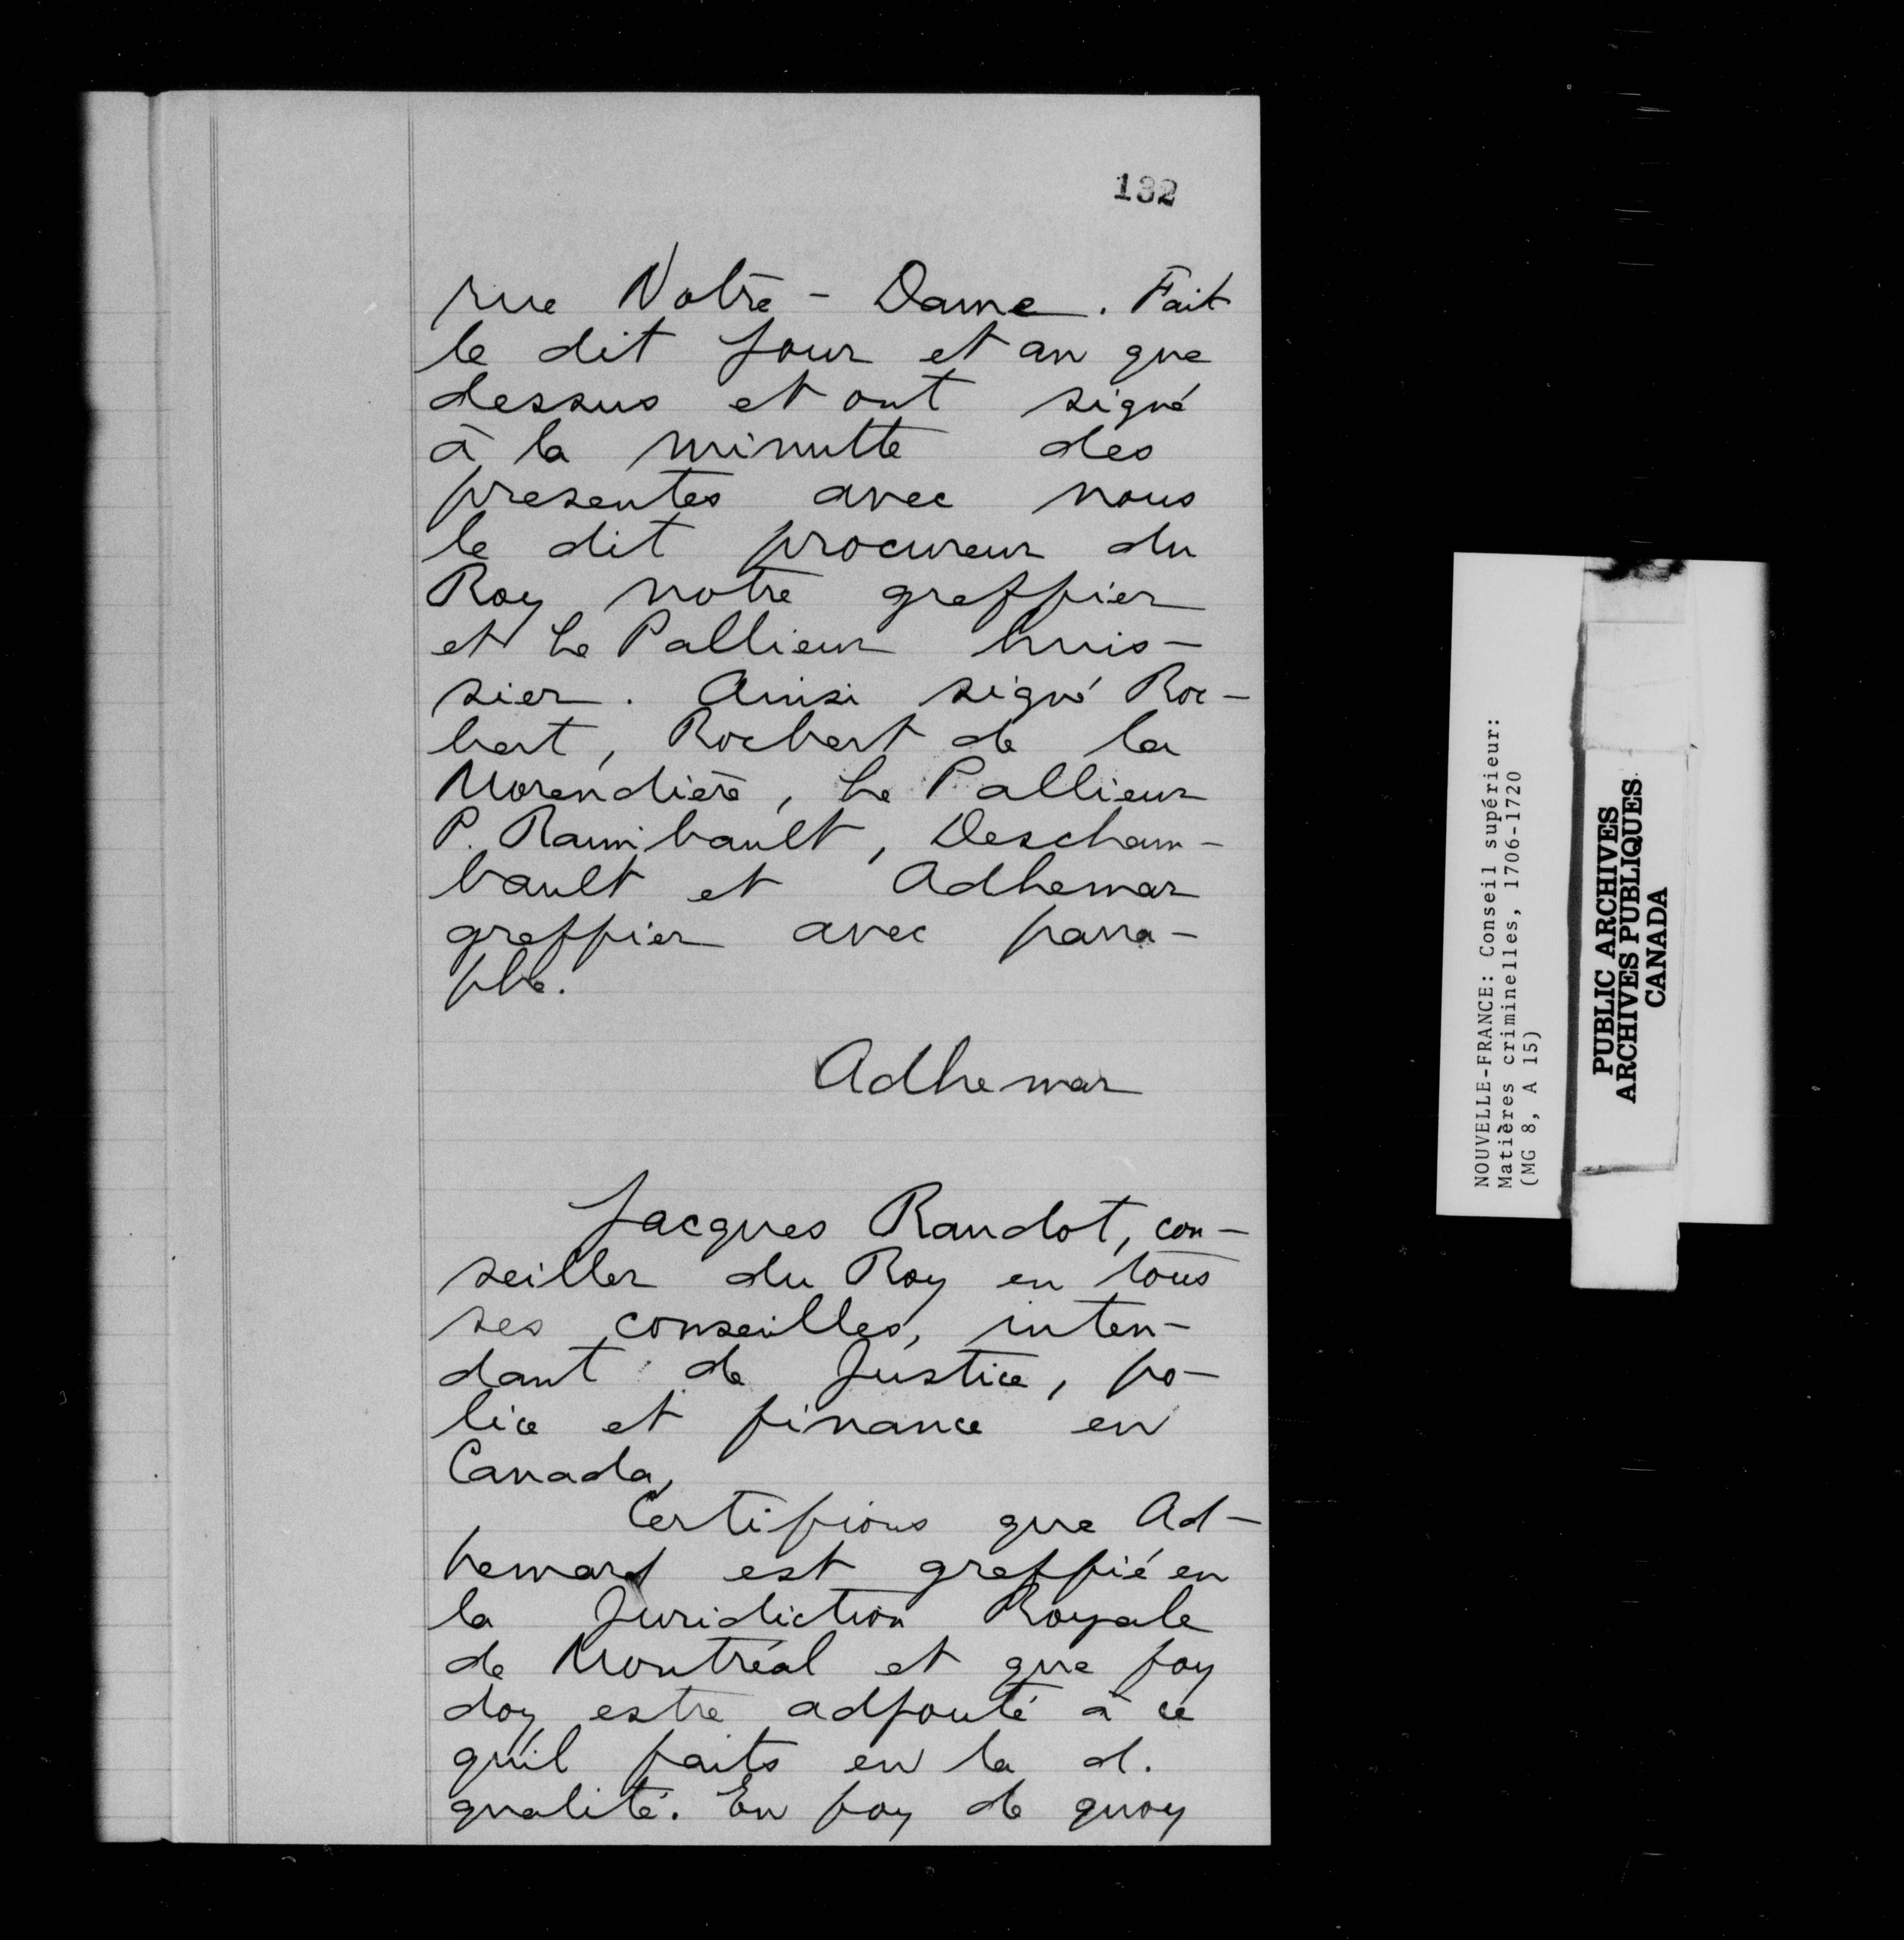 132
rue Notre - Dame. Fait
le dit jour et an que
dessus et ont signé
à la minutte des
presentes avec nous
le dit procureur du
Roy notre greffier
et Le Pallieur huis-
sier. Ainsi signé Roc-
bert, Rocbert de la
Morendière, Le Pallieur
P. Raimbault, Descham-
bault et Adhemar
greffier avec parra-
phe.
Adhemar
Jacques Raudot, con-
seiller du Roy en tous
ses conseilles, inten-
dant de Justice, po-
lice et finance en
Canada,
Certifions que Ad-
hemard est greffié en
la Juridiction Royale
de Montréal et que foy
doy estre adjouté à ce
qu'il faits en la d.
qualité. En foy de quoy
NOUVELLE-FRANCE: Conseil supérieur:
Matières criminelles, 1706-1720
(MG 8, A 15)
PUBLIC ARCHIVES
ARCHIVES PUBLIQUES
CANADA